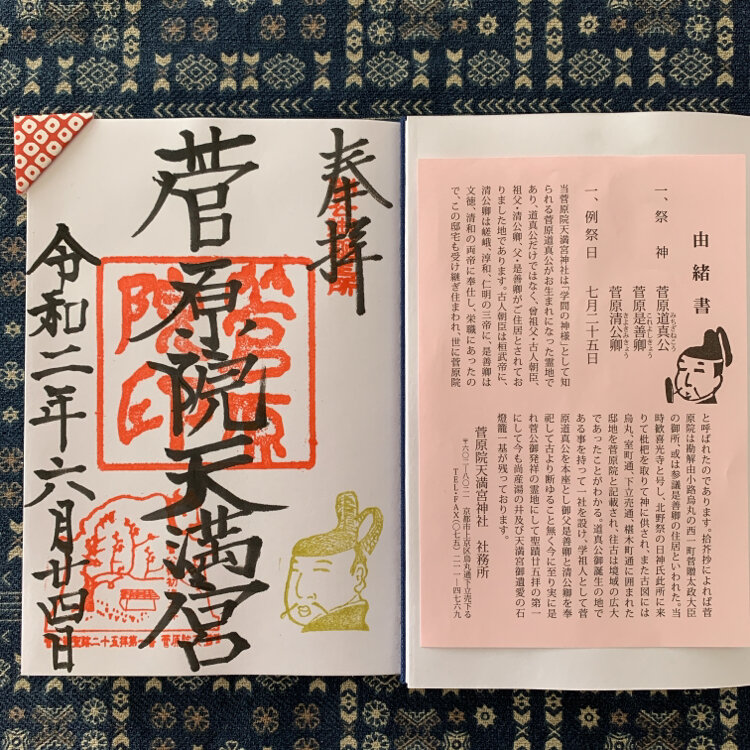 奉拝
菅原院天満宮
令和二年六月廿四日
由緒書
一、祭 神 菅原道真公
みちざねこう
菅原是善卿
これよしきょう
菅原清公卿
きよきみきょう
一、例祭日 七月二十五日
当菅原院天満宮神社は「学問の神様」として知
られる菅原道真公がお生まれになった霊地で
あり、道真公だけではなく、曾祖父・古人朝臣、
祖父・清公卿、父・是善卿がご住居とされてお
りました地であります。古人朝臣は桓武帝に、
清公卿は嵯峨、淳和、仁明の三帝に、是善卿は
文徳、清和の両帝に奉仕し、栄職にあったの
で、この邸宅も受け継ぎ住まわれ、世に菅原院
と呼ばれたのであります。拾芥抄によれば菅
原院は勘解由小路烏丸の西一町菅贈太政大臣
の御所、或は参議是善卿の住居といわれた。当
時歓喜光寺と号し、北野祭の日神氏此所に来
りて枇杷を取りて神に供され、また古図には
烏丸、室町通、下立売通、椹木町通に囲まれた
邸地を菅原院と記載され、往古は境域の広大
であったことがわかる。道真公御誕生の地で
ある事を持って一社を設け、学祖人として菅
原道真公を本座とし御父是善卿と清公卿を奉
祀して古より断ゆること無く今に至り実に是
れ菅公御発祥の霊地にして聖蹟廿五拝の第一
にして今も尚産湯の井及び天満宮御遺愛の石
燈籠一基が残っております。
菅原院天満宮神社 社務所
〒六〇二-八〇二一 京都市上京区烏丸通下立売下る
TEL・FAX(〇七五)二一一-四七六九